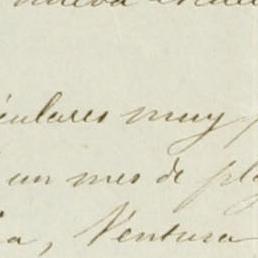 nueva
culares muy
un mes de pla
a, Ventura